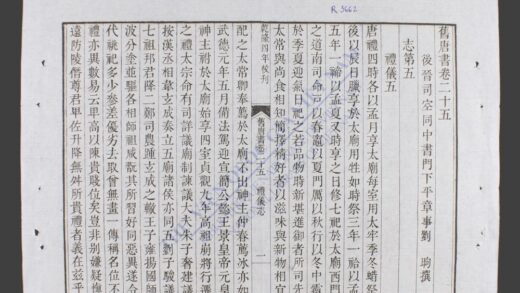 R 3662
舊唐書卷二十五
後晉司空同中書門下平章事劉 昫撰
志第五
禮儀五
唐禮四時各以孟月享太廟每室用太牢季冬蜡祭
後以辰日臘享於太廟用牲如時祭三年一祫以孟
五年一禘以孟夏又時享之日修七祀於太廟西門
之道南司命戶以春竈以夏門厲以秋行以冬中霤
於季夏迎氣日祀之若品物時新堪進御者所司先
太常與尚食相知簡擇精好者以滋味與新物相宜
乾隆四年校刊 舊唐書卷二十五 禮儀志 一
配之太常卿奉薦於太廟不出神主仲春薦冰亦如
武德元年五月備法駕迎宣簡公懿王景皇帝元皇
神主祔於太廟始享四室貞觀九年高祖崩將行遷
之禮太宗命有司詳議廟制諫議大夫朱子奢建議
按漢丞相韋玄成奏立五廟諸侯亦同五劉子駿議
七祖邦君降二鄭司農踵玄成之轍王子雍揚國師
波分塗並驅各相師祖咸翫其所習好同惡異遂令
代祧祀多少參差優劣去取曾無畫一傳稱名位不
禮亦異數易云卑高以陳貴賤位矣豈非別嫌疑慎
遠防陵僭尊君卑佐升降無舛所貴禮者義在茲乎